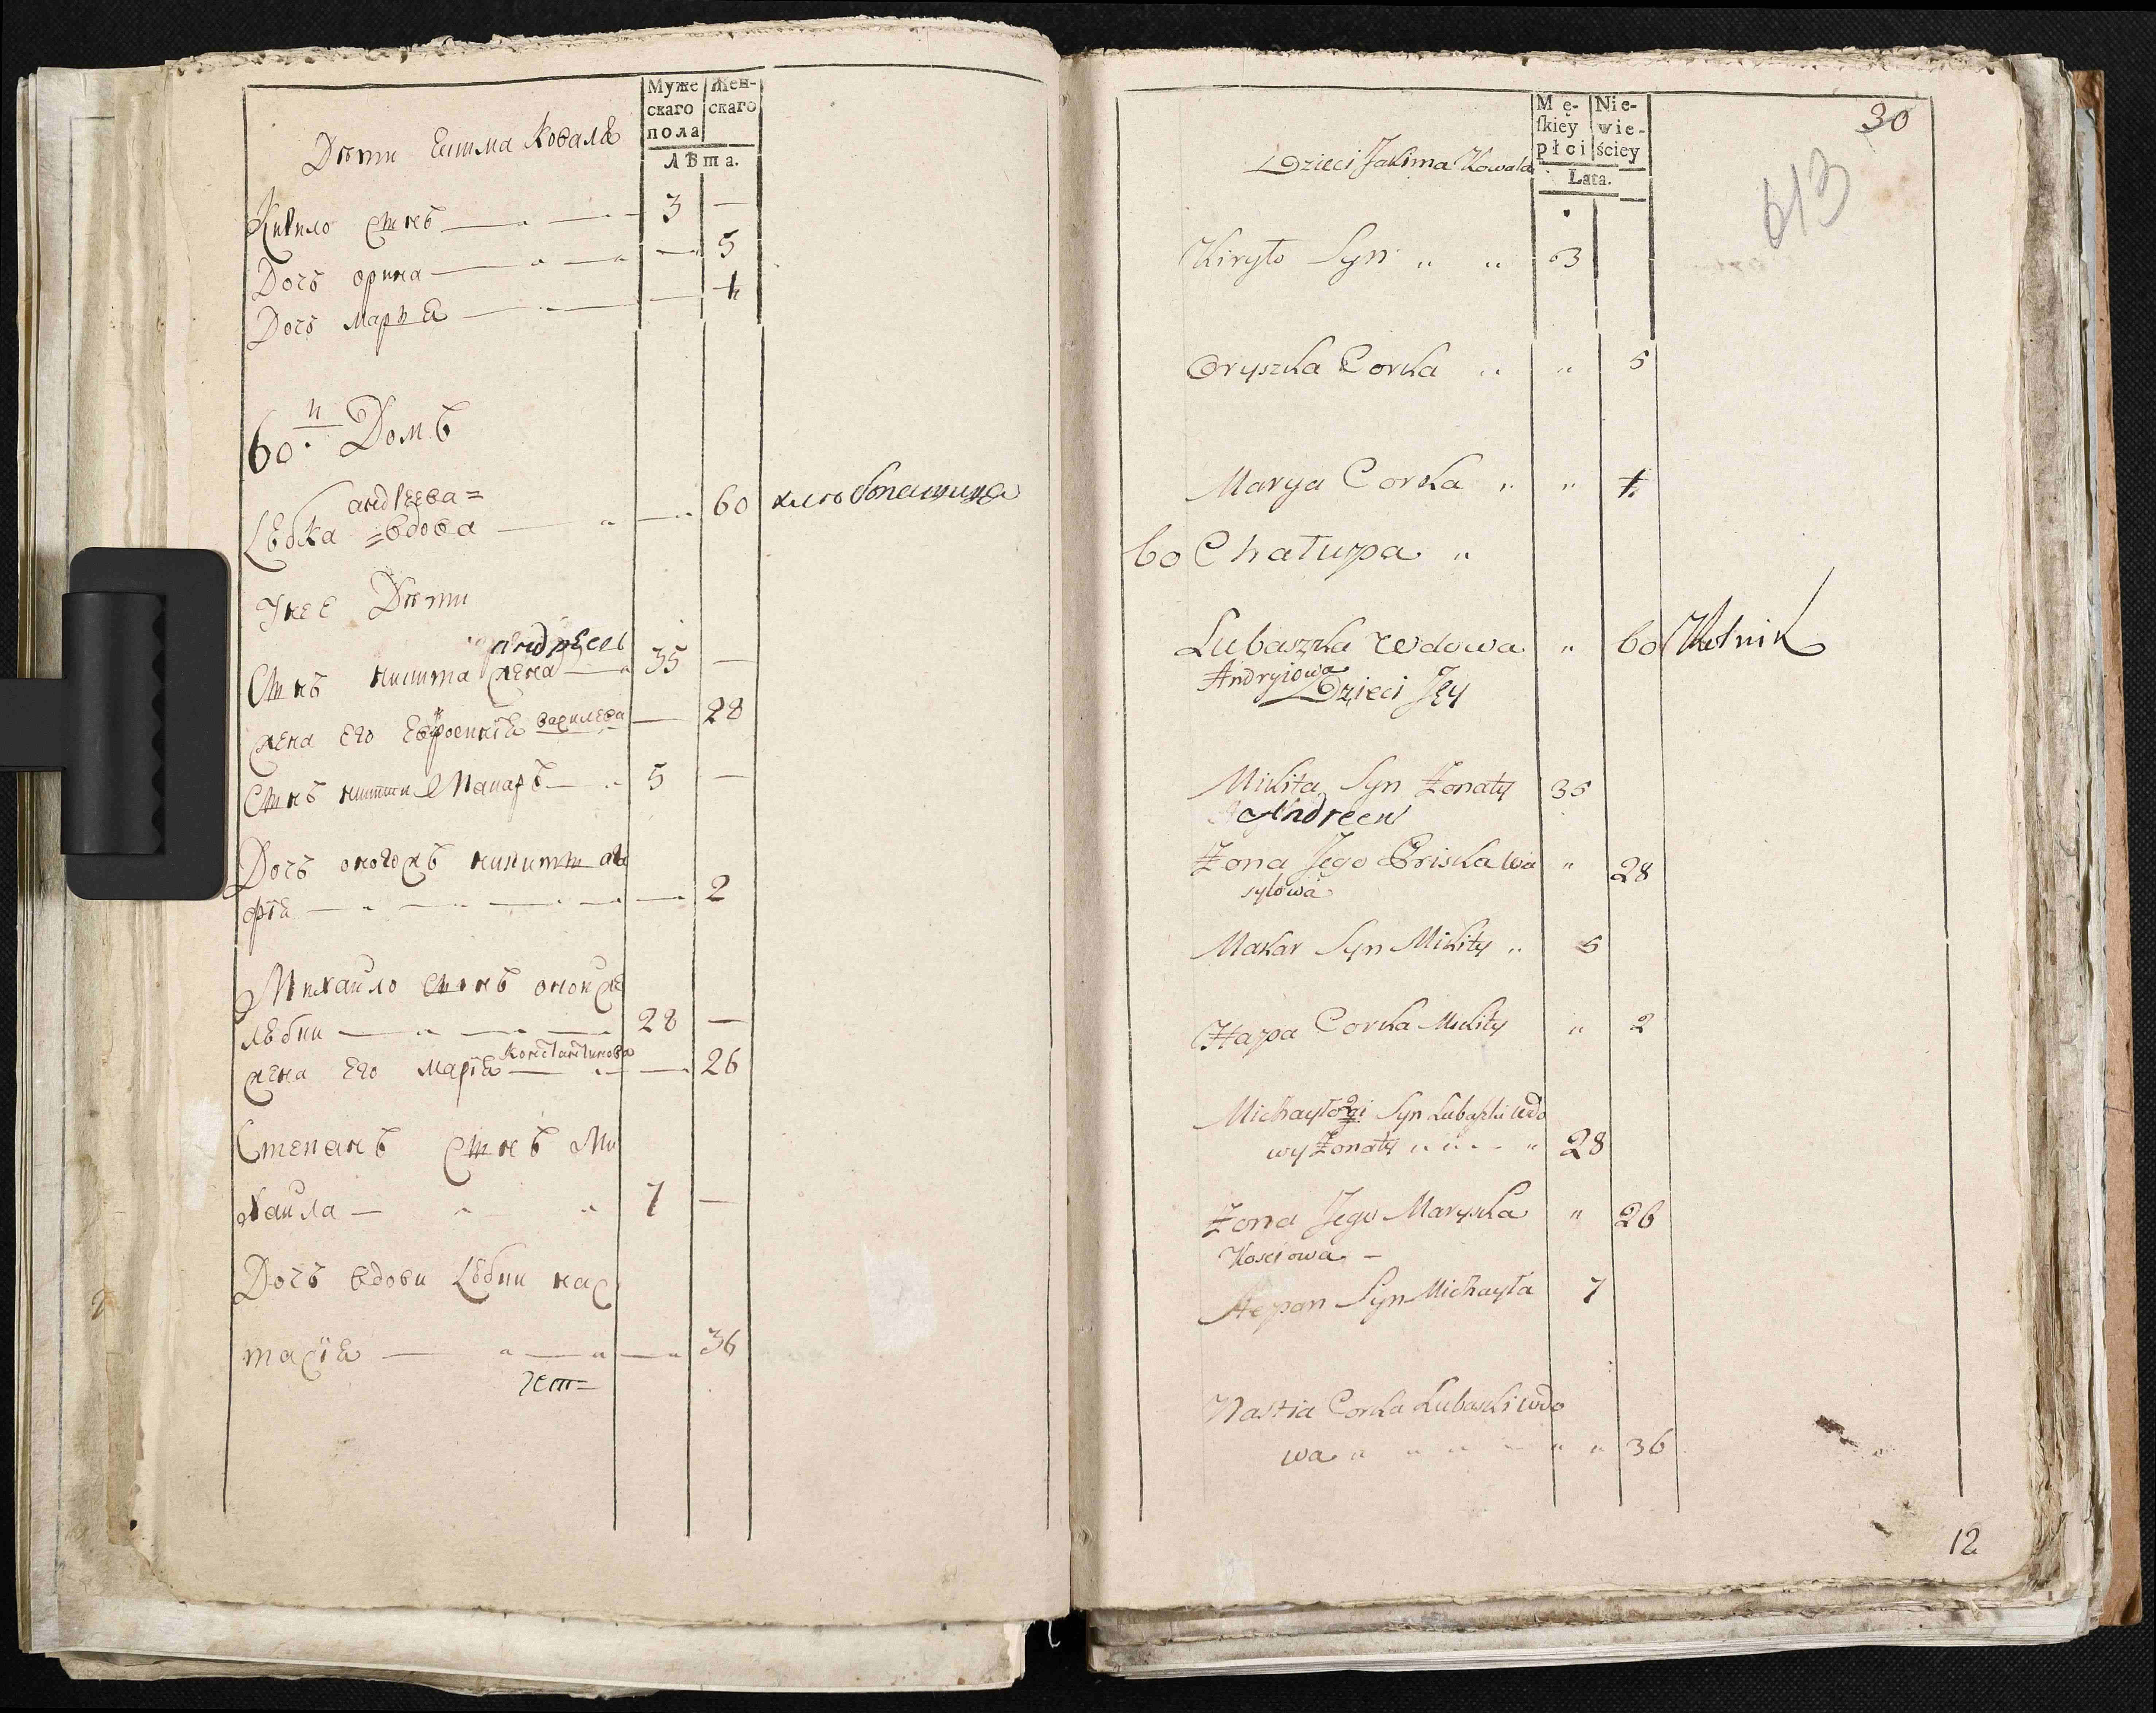 Муже
скаго
пола
Жен-
скаго
Лѣта.
Дѣти Екима Коваля
Кирило сынъ 3 —
Дочъ орина — 5
Дочъ Марья — 1
60й Домъ
андрѣева =
Любка = вдова — 60
У нее Дѣти
андреевъ
Сынъ никита жена 35 —
жена его Евфросиния василева — 28
Сынъ никити Макаръ 5 —
Дочъ оногожъ никити ага
фїя — 2
Михайло сынъ оной же
любки 28 —
Константинова
жена его марїя — 26
Степанъ сынъ Ми
хайла — 7 —
Дочъ вдови Любки нас
тасїя — 36
чет=
Mę-
skiey
płci
Nie-
wie-
ściey
Lata.
30
613
Dzieci Jakima Kowala
Kiryło Syn „ „ 3
Oryszka Corka „ „ 5
Marya Corka „ „ 1
60 Chałupa „
Lubaszka Wdowa „ 60 Rolnik
Andryiowa
Dzieci Jey
Mikita Syn Żonaty 35
Andreew
Żona Jego Priska Wa „ 28
sylowa
Makar Syn Mikity „ 5
Hapa Corka Mikity „ 2
Michayło 2gi Syn Lubaszki wdo
wy Żonaty „ „ „ 28
Żona Jego Maryska „ 26
Kosciowa —
Stepan Syn Michayła 7
Nastia Corka Lubaski wdo
wa „ „ „ „ „ „ 36
12